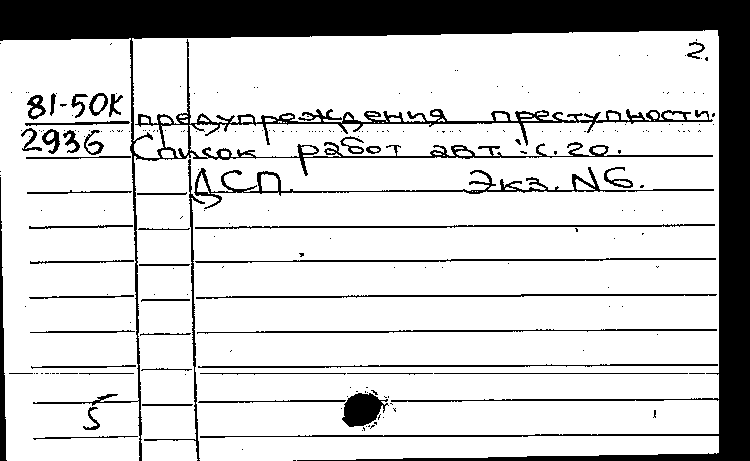 2.
81-50К предупреждения преступности.
2936 Список работ авт.: с. 20.
ДСП. Экз. N6.
5